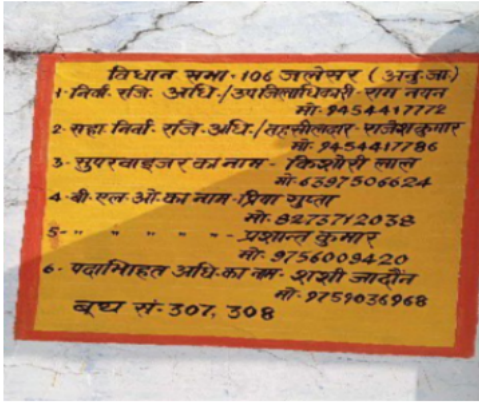 विधान सभा-106 जलेसर (अनु.जा)
1- निर्वा. रजि. अधि./उपजिलाधिकारी- राम नयन
मो- 9454417772
2- सहा. निर्वा. रजि. अधि./तहसीलदार- राजेश कुमार
मो- 9454417786
3- सुपरवाइजर का नाम - किशोरी लाल
मो- 6397506624
4- बी.एल.ओ. का नाम- प्रिया गुप्ता
मो- 8273712038
5- " " " " " - प्रशान्त कुमार
मो- 9756009420
6- पदाभिहित अधि. का नाम- शशी जादौन
मो- 9759036968
बूथ सं- 307, 308